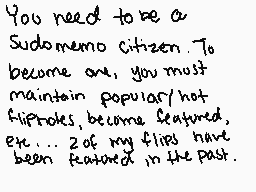 You need to be a
Sudomemo citizen. To
become one, you must
maintain popular/hot
flipnotes, become featured,
etc... 2 of my flips have
been featured in the past.